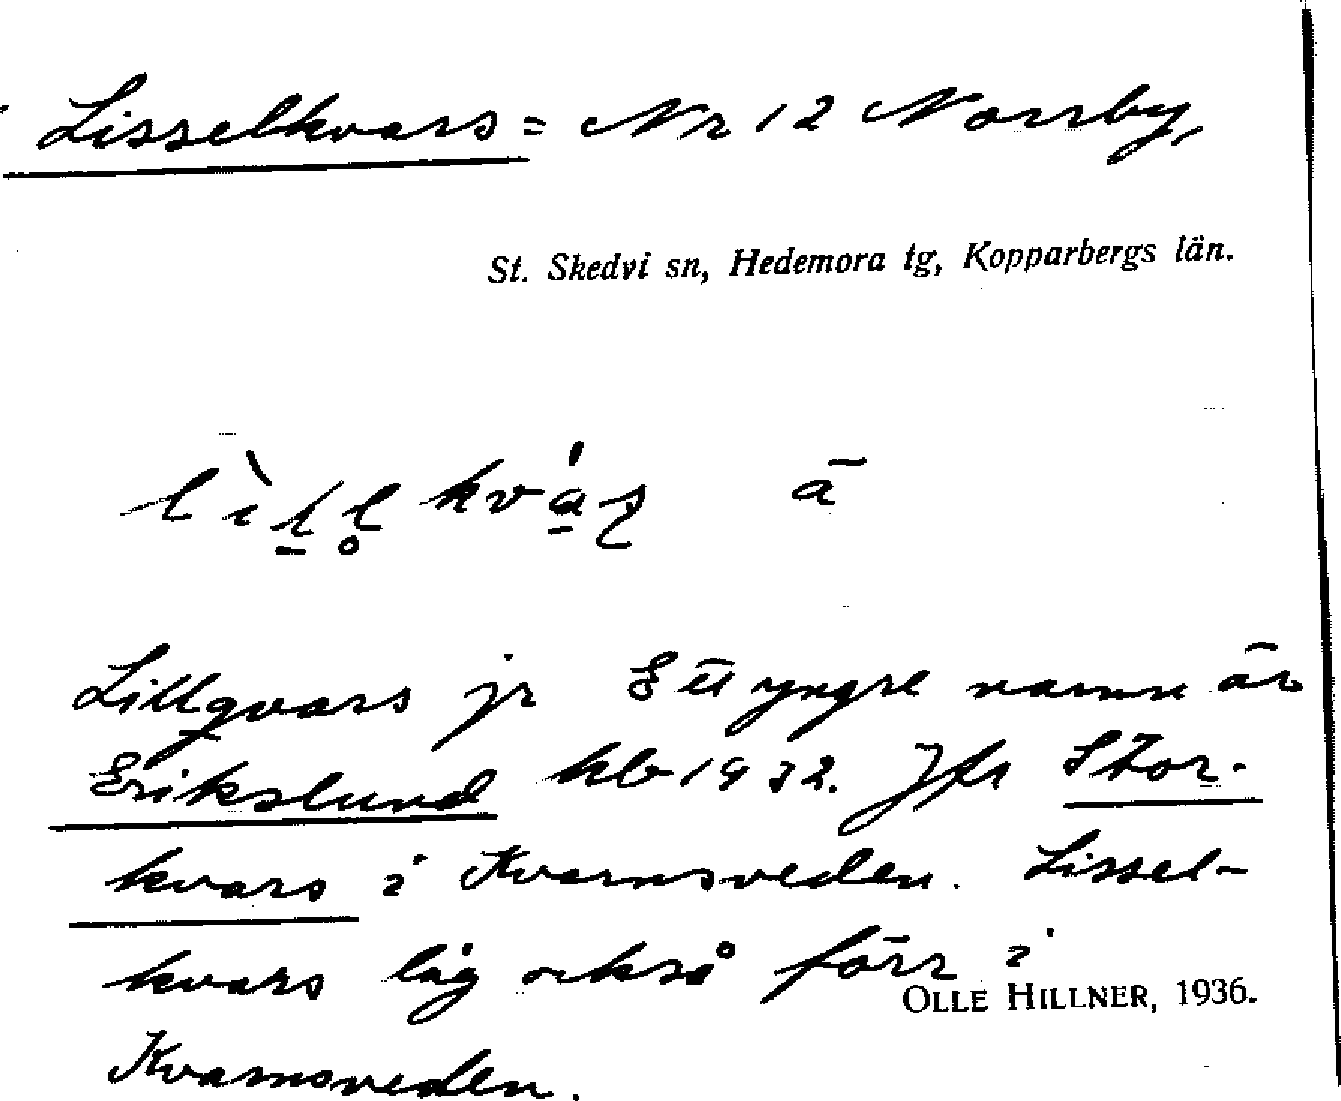 Lisselkvars = Nr 12 Norrby,
St. Skedvi sn, Hedemora tg, Kopparbergs län.
ā
Lillqvars jr Ett yngre namn är
Erikslund kb 1932. Jfr Stor-
kvars i Kvarnsveden. Lissel-
kvars låg också förr i
OLLE HILLNER, 1936.
Kvarnsveden.